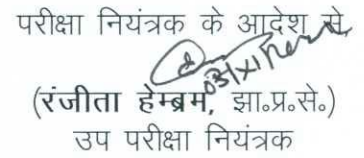 परीक्षा नियंत्रक के आदेश से
(रंजीता हेम्ब्रम, झा०प्र०से०)
उप परीक्षा नियंत्रक